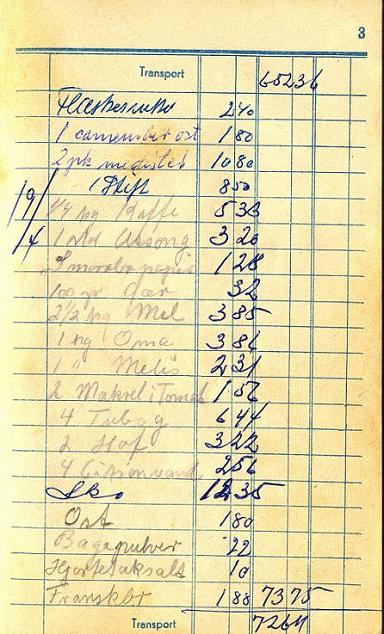 3
Transport 65236
Flæskesvær 240
1 camembert ost 180
2 pk medister 1080
1 Stift 850
19/4
1/4 kg Kaffe 533
1 rld 320
Smørrebrpapir 128
100 gr Gær 32
2 1/2 kg Mel 385
1 kg Oma 386
1 " Melis 231
2 Makrel i Tomat 156
4 Tuborg 644
2 Hof 322
4 Citronvand 256
Sko 1235
Ost 180
Bagepulver 22
Hjortetaksalt 10
Franskbr 188 7375
Transport 7264